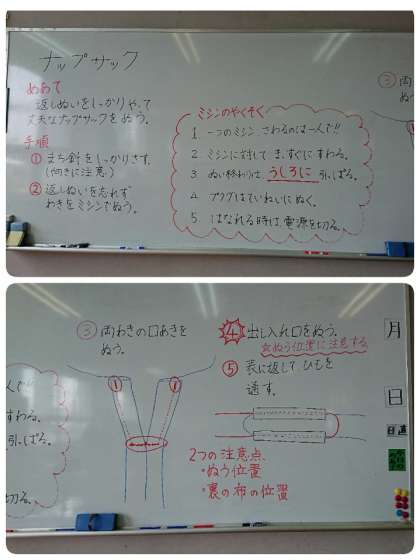 ナップサック
めあて
返しぬいをしっかりやって
丈夫なナップサックをぬう。
手順
① まち針をしっかりさす。
(向きに注意)
② 返しぬいを忘れず
わきをミシンでぬう。
ミシンのやくそく
1 一つのミシン、さわるのは一人で!!
2 ミシンに対してまっすぐにすわる。
3 ぬい終わりは、うしろに引っぱる。
4 プラグはていねいにぬく。
5 はなれる時は電源を切る。
③ 両わ
ぬ
③ 両わきの口あきを
ぬう。
④ 出し入れ口をぬう。
☆ぬう位置に注意する。
⑤ 表に返してひもを
通す。
2つの注意点
・ぬう位置
・裏の布の位置
で!!
すわる。
引っぱる。
切る。
① ①
月
日
日直